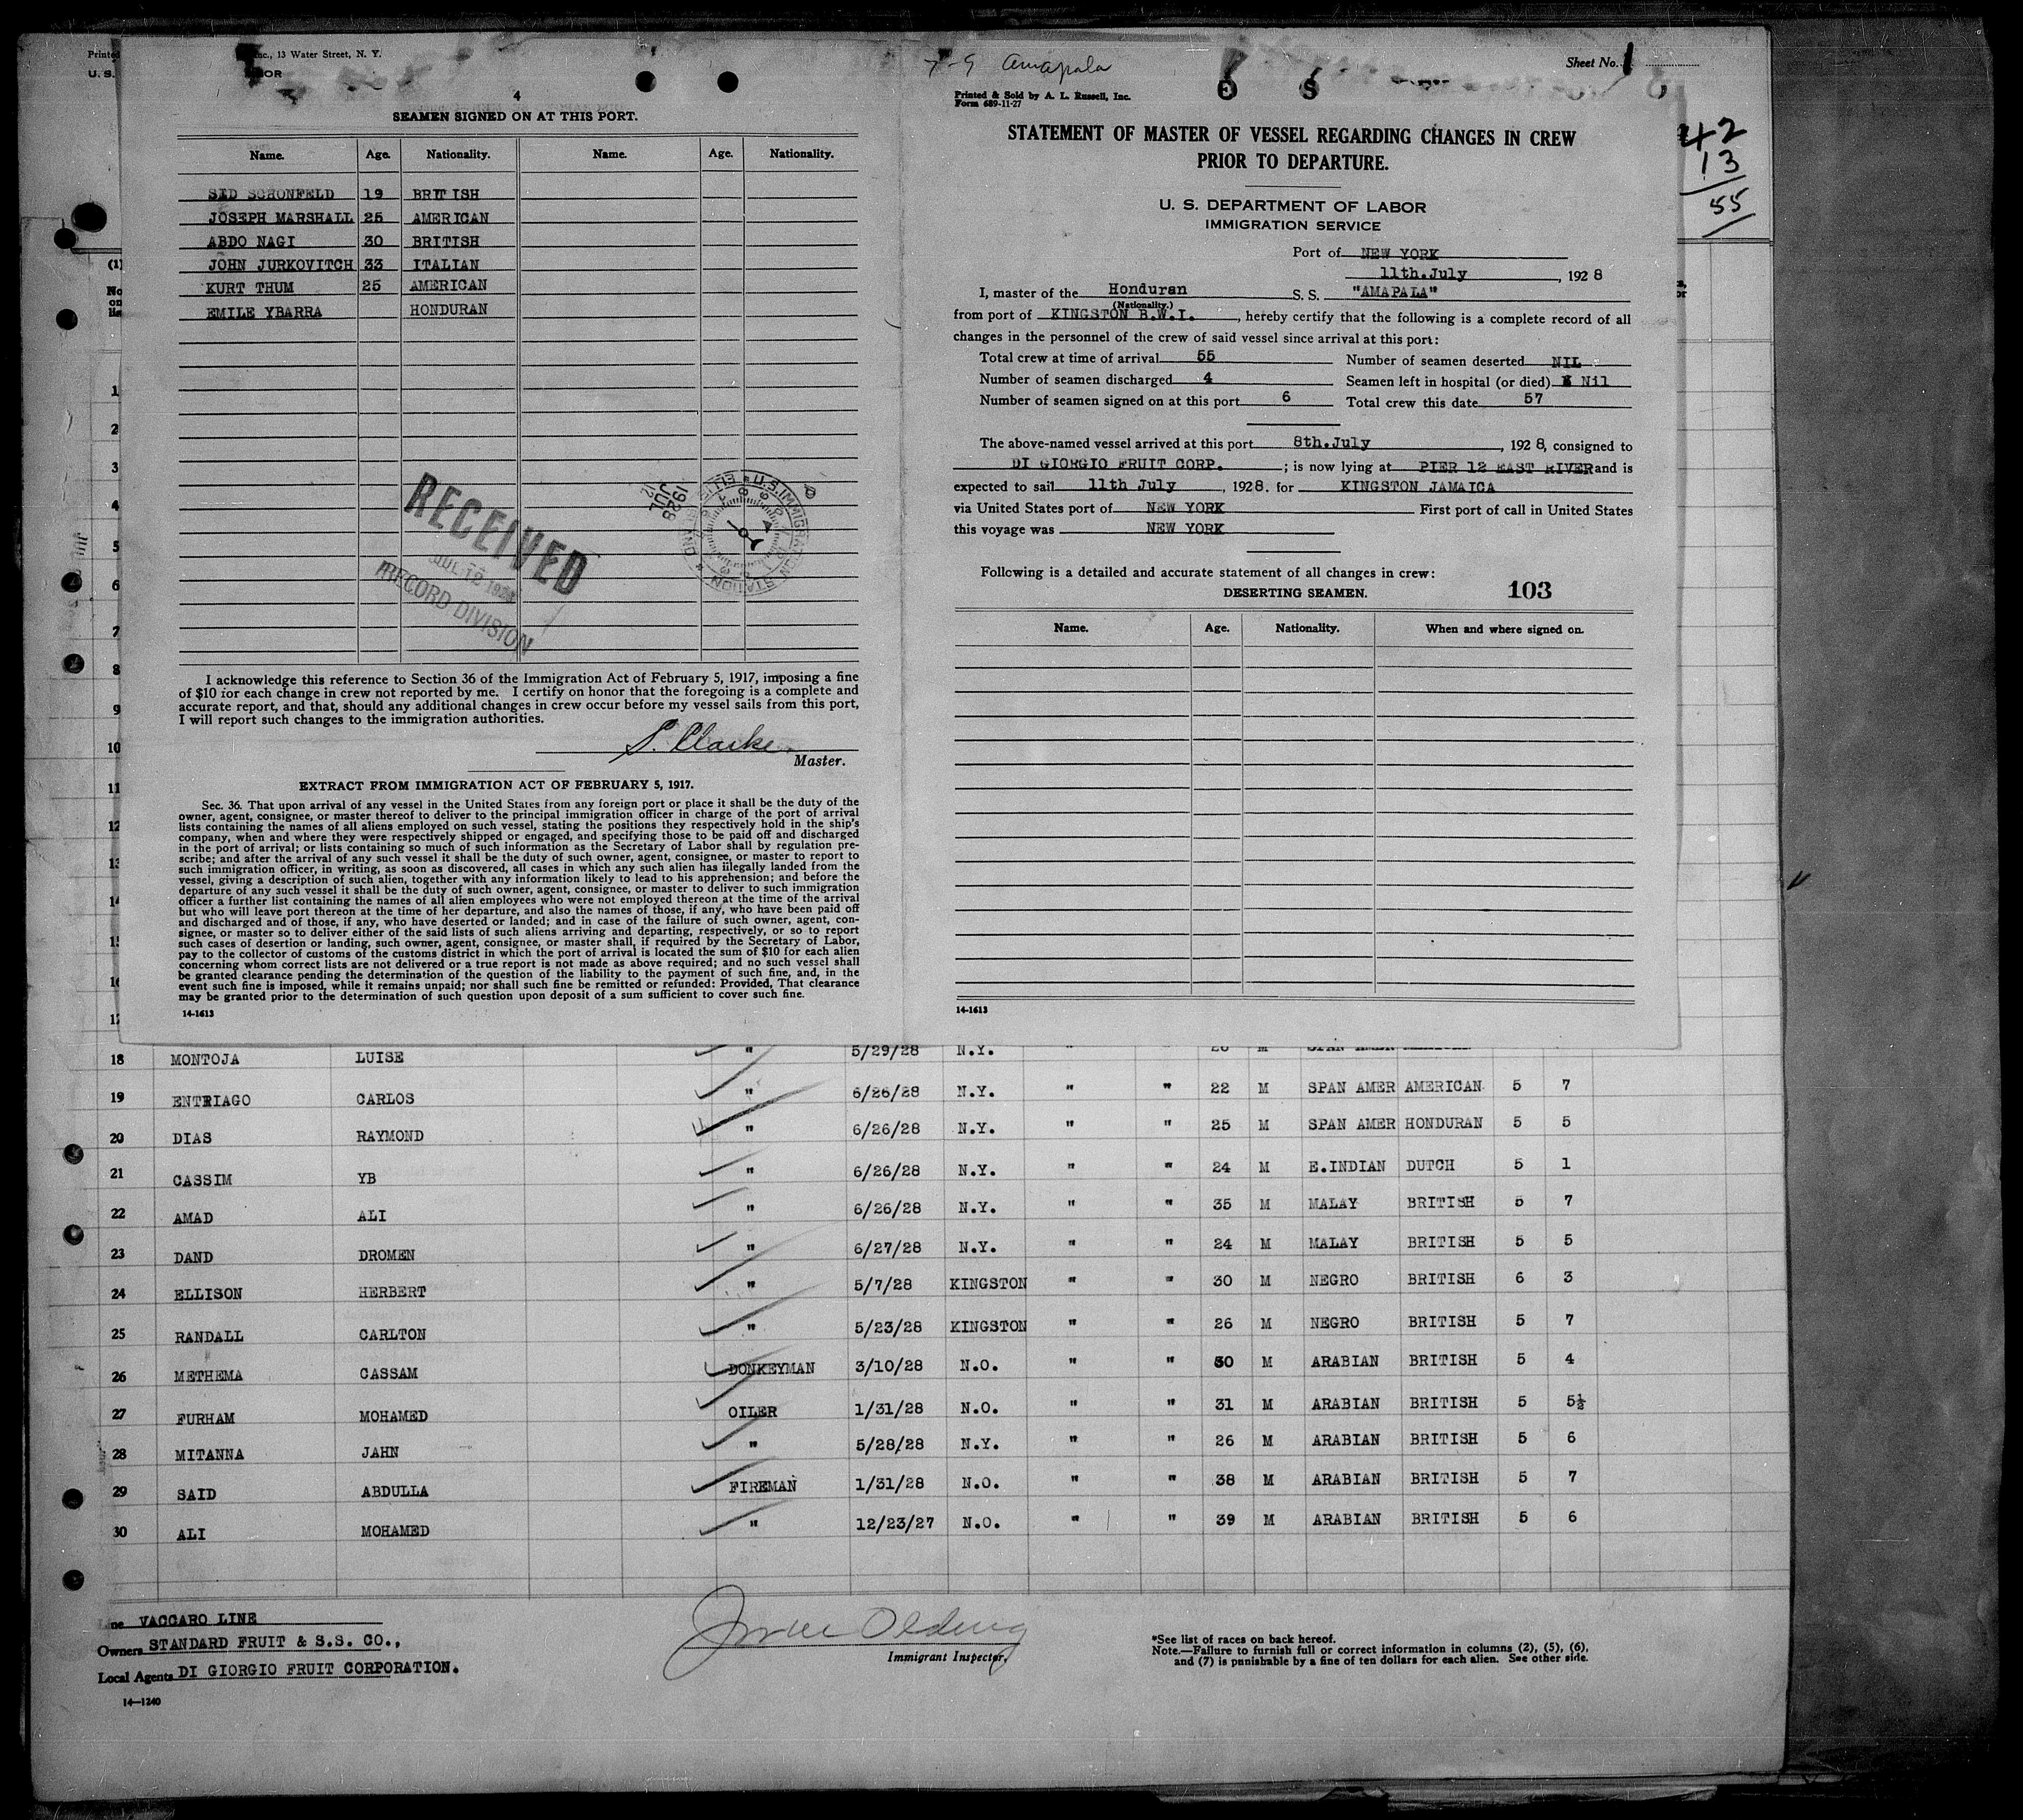 Printed
Inc., 13 Water Street, N. Y.
U. S.
4
SEAMEN SIGNED ON AT THIS PORT.
Name. Age. Nationality. Name. Age. Nationality.
SID SCHONFELD 19 BRITISH
JOSEPH MARSHALL 25 AMERICAN
ABDO NAGI 30 BRITISH
JOHN JURKOVITCH 33 ITALIAN
KURT THUM 25 AMERICAN
EMILE YBARRA HONDURAN
RECEIVED
JUL 12 1928
RECORD DIVISION
1928
JUL
12
U.S. IMMIGRATION STATION
I acknowledge this reference to Section 36 of the Immigration Act of February 5, 1917, imposing a fine
of $10 for each change in crew not reported by me. I certify on honor that the foregoing is a complete and
accurate report, and that, should any additional changes in crew occur before my vessel sails from this port,
I will report such changes to the immigration authorities.
S. Clarke
Master.
EXTRACT FROM IMMIGRATION ACT OF FEBRUARY 5, 1917.
Sec. 36. That upon arrival of any vessel in the United States from any foreign port or place it shall be the duty of the
owner, agent, consignee, or master thereof to deliver to the principal immigration officer in charge of the port of arrival
lists containing the names of all aliens employed on such vessel, stating the positions they respectively hold in the ship's
company, when and where they were respectively shipped or engaged, and specifying those to be paid off and discharged
in the port of arrival; or lists containing so much of such information as the Secretary of Labor shall by regulation pre-
scribe; and after the arrival of any such vessel it shall be the duty of such owner, agent, consignee, or master to report to
such immigration officer, in writing, as soon as discovered, all cases in which any such alien has illegally landed from the
vessel, giving a description of such alien, together with any information likely to lead to his apprehension; and before the
departure of any such vessel it shall be the duty of such owner, agent, consignee, or master to deliver to such immigration
officer a further list containing the names of all alien employees who were not employed thereon at the time of the arrival
but who will leave port thereon at the time of her departure, and also the names of those, if any, who have been paid off
and discharged and of those, if any, who have deserted or landed; and in case of the failure of such owner, agent, con-
signee, or master so to deliver either of the said lists of such aliens arriving and departing, respectively, or so to report
such cases of desertion or landing, such owner, agent, consignee, or master shall, if required by the Secretary of Labor,
pay to the collector of customs of the customs district in which the port of arrival is located the sum of $10 for each alien
concerning whom correct lists are not delivered or a true report is not made as above required; and no such vessel shall
be granted clearance pending the determination of the question of the liability to the payment of such fine, and, in the
event such fine is imposed, while it remains unpaid; nor shall such fine be remitted or refunded: Provided, That clearance
may be granted prior to the determination of such question upon deposit of a sum sufficient to cover such fine.
14-1613
7-9 Amapala
Sheet No. 1
Printed & Sold by A. L. Russell, Inc.
Form 689-11-27
STATEMENT OF MASTER OF VESSEL REGARDING CHANGES IN CREW
PRIOR TO DEPARTURE.
42
13
55
U. S. DEPARTMENT OF LABOR
IMMIGRATION SERVICE
Port of NEW YORK
11th.July, 1928
I, master of the Honduran S. S. "AMAPALA"
(Nationality.)
from port of KINGSTON B.W.I., hereby certify that the following is a complete record of all
changes in the personnel of the crew of said vessel since arrival at this port:
Total crew at time of arrival 55 Number of seamen deserted NIL
Number of seamen discharged 4 Seamen left in hospital (or died) Nil
Number of seamen signed on at this port 6 Total crew this date 57
The above-named vessel arrived at this port 8th.July, 1928, consigned to
DI GIORGIO FRUIT CORP.; is now lying at PIER 12 EAST RIVER and is
expected to sail 11th July, 1928. for KINGSTON JAMAICA
via United States port of NEW YORK First port of call in United States
this voyage was NEW YORK
Following is a detailed and accurate statement of all changes in crew:
DESERTING SEAMEN. 103
Name. Age. Nationality. When and where signed on.
14-1613
(1)
No
on
1
2
3
4
5
6
7
8
9
10
11
12
13
14
15
16
17
18 MONTOJA LUISE " 5/29/28 N.Y. " M
19 ENTRIAGO CARLOS " 6/26/28 N.Y. " " 22 M SPAN AMER AMERICAN 5 7
20 DIAS RAYMOND " 6/26/28 N.Y. " " 25 M SPAN AMER HONDURAN 5 5
21 CASSIM YB " 6/26/28 N.Y. " " 24 M E.INDIAN DUTCH 5 1
22 AMAD ALI " 6/26/28 N.Y. " " 35 M MALAY BRITISH 5 7
23 DAND DROMEN " 6/27/28 N.Y. " " 24 M MALAY BRITISH 5 5
24 ELLISON HERBERT " 5/7/28 KINGSTON " " 30 M NEGRO BRITISH 6 3
25 RANDALL CARLTON " 5/23/28 KINGSTON " " 26 M NEGRO BRITISH 5 7
26 METHEMA CASSAM DONKEYMAN 3/10/28 N.O. " " 30 M ARABIAN BRITISH 5 4
27 FURHAM MOHAMED OILER 1/31/28 N.O. " " 31 M ARABIAN BRITISH 5 5½
28 MITANNA JAHN " 5/28/28 N.Y. " " 26 M ARABIAN BRITISH 5 6
29 SAID ABDULLA FIREMAN 1/31/28 N.O. " " 38 M ARABIAN BRITISH 5 7
30 ALI MOHAMED " 12/23/27 N.O. " " 39 M ARABIAN BRITISH 5 6
VACCARO LINE
Owners STANDARD FRUIT & S.S. CO.,
Local Agents DI GIORGIO FRUIT CORPORATION.
14-1240
Immigrant Inspector.
*See list of races on back hereof.
Note.—Failure to furnish full or correct information in columns (2), (5), (6),
and (7) is punishable by a fine of ten dollars for each alien. See other side.